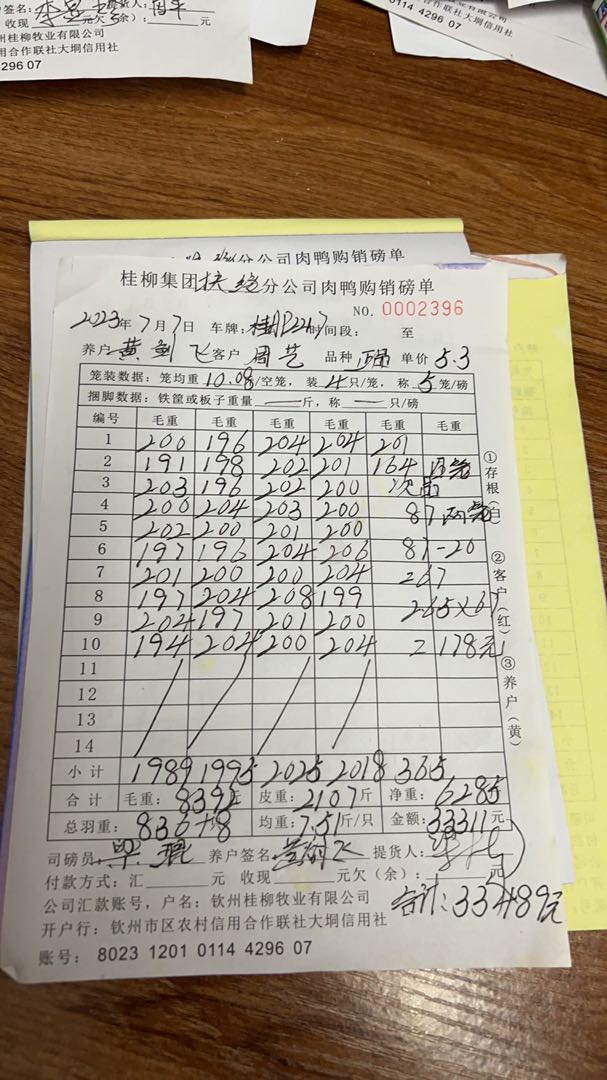 户签名: 提货人:
收现 欠(余): 元
州桂柳牧业有限公司
用合作联社大垌信用社
4296 07
业有限公司
联社大垌信用社
0114 4296 07
分公司肉鸭购销磅单
桂柳集团扶绥分公司肉鸭购销磅单
NO. 0002396
2023年7月7日 车牌: 时间段: 至
养户 黄剑飞 客户 周艺 品种 单价 5.3
笼装数据: 笼均重 10.08/空笼, 装 4 只/笼, 称 5 笼/磅
捆脚数据: 铁筐或板子重量 — 斤, 称 — 只/磅
编号 毛重 毛重 毛重 毛重 毛重 毛重
1 200 196 204 204 201
2 191 198 202 201 164
3 203 196 202 200 次品
4 200 204 203 200 87 两笼
5 202 200 201 200
6 197 196 204 206 87-20
7 201 200 200 204 =67
8 197 204 208 199
9 204 197 201 200 2.65×67
10 194 204 200 204 =178元
11
12
13
14
小计 1989 1995 2025 2018 365
合计 毛重: 8392 皮重: 2107斤 净重: 6285
总羽重: 836+8 均重: 7.51斤/只 金额: 33311元
司磅员: 养户签名: 提货人:
付款方式: 汇 元 收现 元 欠(余): 元
合计: 33489元
公司汇款账号, 户名: 钦州桂柳牧业有限公司
开户行: 钦州市区农村信用合作联社大垌信用社
账号: 8023 1201 0114 4296 07
①存根(白)
②客户(红)
③养户(黄)